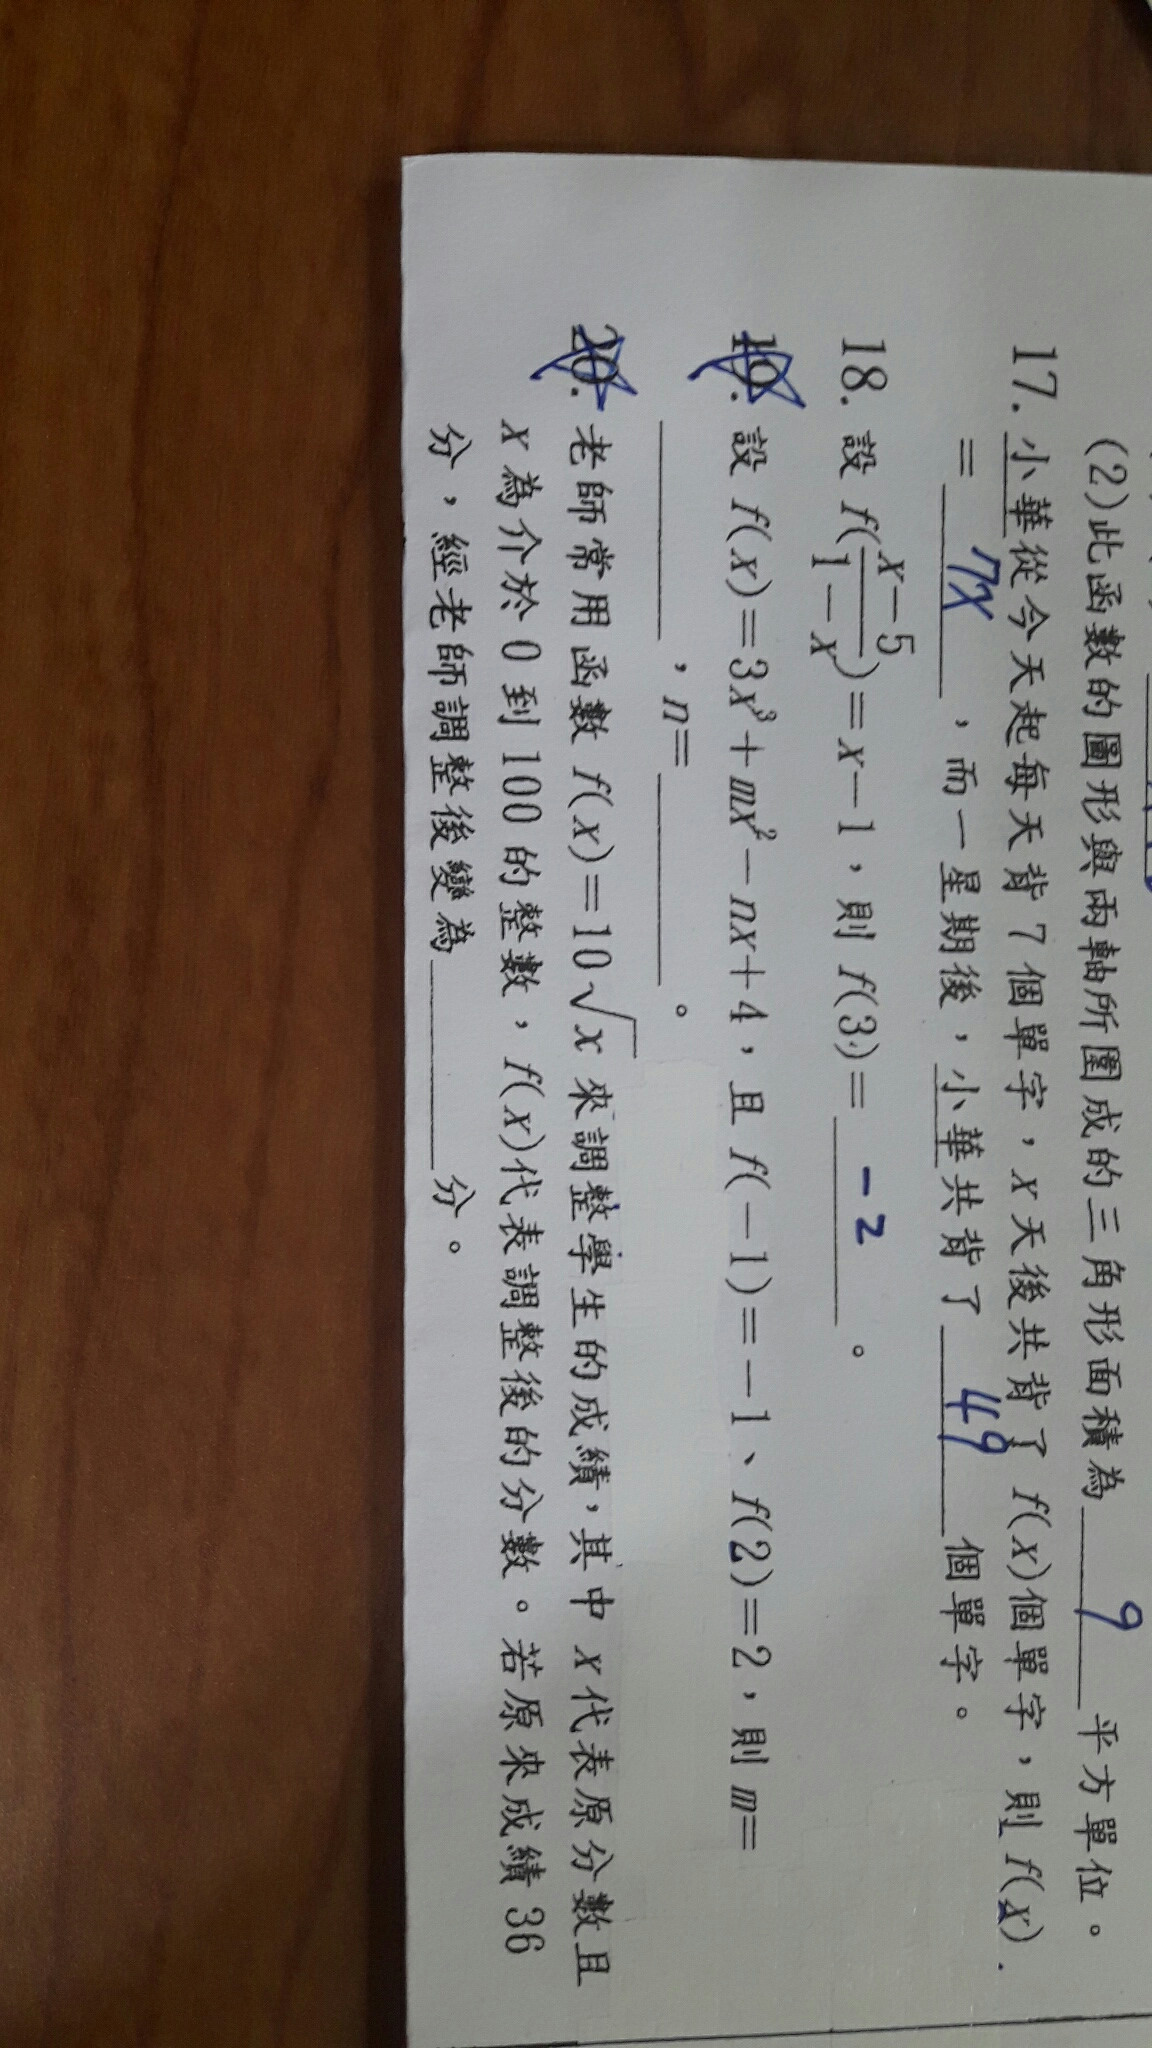 (2)此函數的圖形與兩軸所圍成的三角形面積為 9 平方單位。
17. 小華從今天起每天背 7 個單字，x 天後共背了 f(x)個單字，則 f(x)
= 7x ，而一星期後，小華共背了 49 個單字。
18. 設 f(\frac{x-5}{1-x})=x-1，則 f(3)= -2 。
19. 設 f(x)=3x³+mx²-nx+4，且 f(-1)=-1、f(2)=2，則 m=
，n= 。
20. 老師常用函數 f(x)=10√x 來調整學生的成績，其中 x 代表原分數且
x 為介於 0 到 100 的整數，f(x)代表調整後的分數。若原來成績 36
分，經老師調整後變為 分。